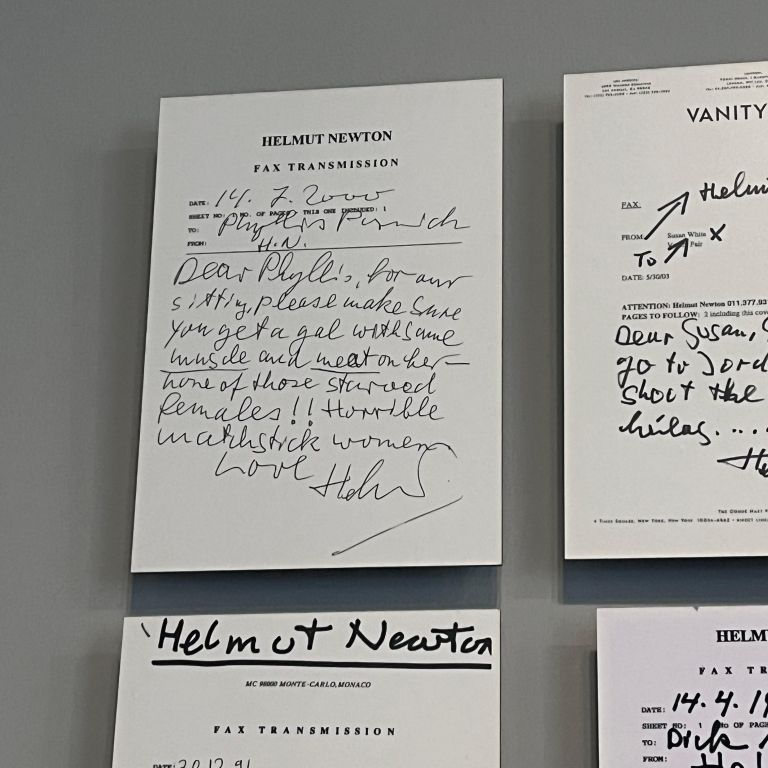 HELMUT NEWTON
FAX TRANSMISSION
DATE: 14. 7. 2000
SHEET NO: 1 NO. OF PAGES THIS ONE INCLUDED: 1
TO: Phyllis
FROM: H.N.
Dear Phyllis, for our
sitting, please make sure
you get a gal with some
muscle and meat on her –
none of those starved
females!! Horrible
matchstick women
Love Helmut
VANITY
FAX:
Helm
FROM
Susan White X
To
Fair
DATE: 5/30/03
ATTENTION: Helmut Newton 011.377.93
PAGES TO FOLLOW: 2 including this cov
Dear Susan,
go to Jord
shoot the
4 TIMES SQUARE, NEW YORK, NEW YORK
Helmut Newton
MC 98000 MONTE-CARLO, MONACO
FAX TRANSMISSION
DATE: 20.12.91
HELM
FAX TR
DATE: 14.4.19
SHEET NO: 1 NO OF PAGE
TO: Dick
FROM: Hel